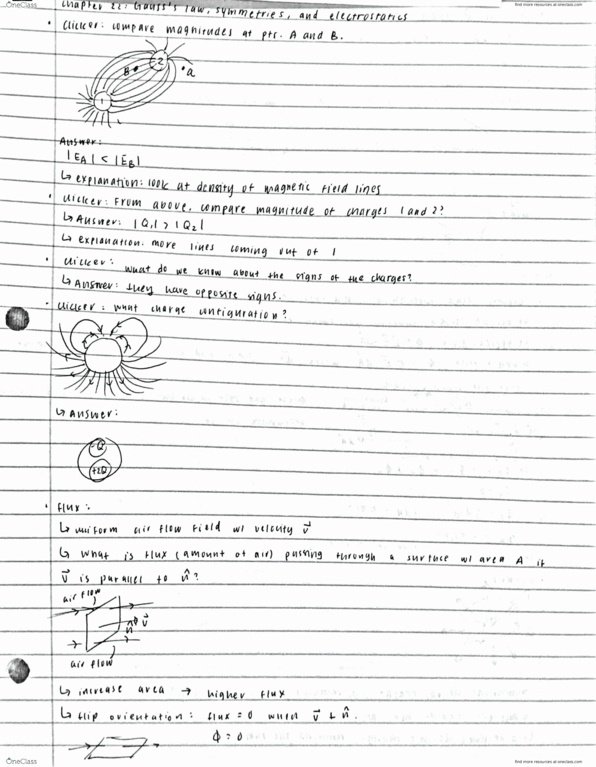 OneClass
find more resources at oneclass.com
Chapter 22: Gauss's law, symmetries, and electrostatics
• Clicker: compare magnitudes at pts. A and B.
2
B
a
1
Answer:
|EA| < |EB|
↳ explanation: look at density of magnetic field lines
• Clicker: From above, compare magnitude of charges 1 and 2?
↳ Answer: |Q1| > |Q2|
↳ explanation: more lines coming out of 1
• Clicker: what do we know about the signs of the charges?
↳ Answer: they have opposite signs.
• Clicker: what charge configuration?
↳ Answer:
-Q
+2Q
• Flux:
↳ uniform air flow field w/ velocity v⃗
↳ what is flux (amount of air) passing through a surface w/ area A if
v⃗ is parallel to n̂?
air flow
n̂ v⃗
air flow
↳ increase area → higher flux
↳ flip orientation: flux = 0 when v⃗ ⊥ n̂.
Φ = 0
OneClass
find more resources at oneclass.com